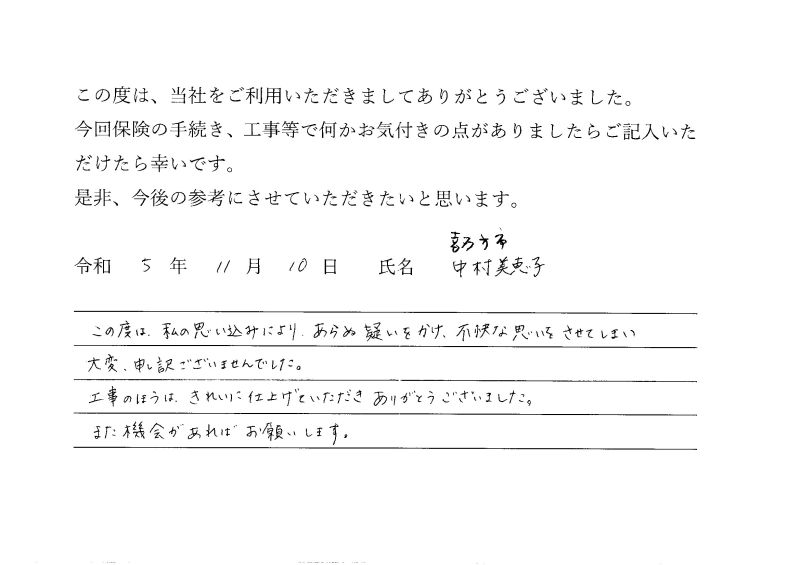 この度は、当社をご利用いただきましてありがとうございました。
今回保険の手続き、工事等で何かお気付きの点がありましたらご記入いた
だけたら幸いです。
是非、今後の参考にさせていただきたいと思います。
喜多方市
令和 5 年 11 月 10 日 氏名 中村美恵子
この度は、私の思い込みにより、あらぬ疑いをかけ、不快な思いをさせてしまい
大変、申し訳ございませんでした。
工事のほうは、きれいに仕上げていただきありがとうございました。
また機会があればお願いします。